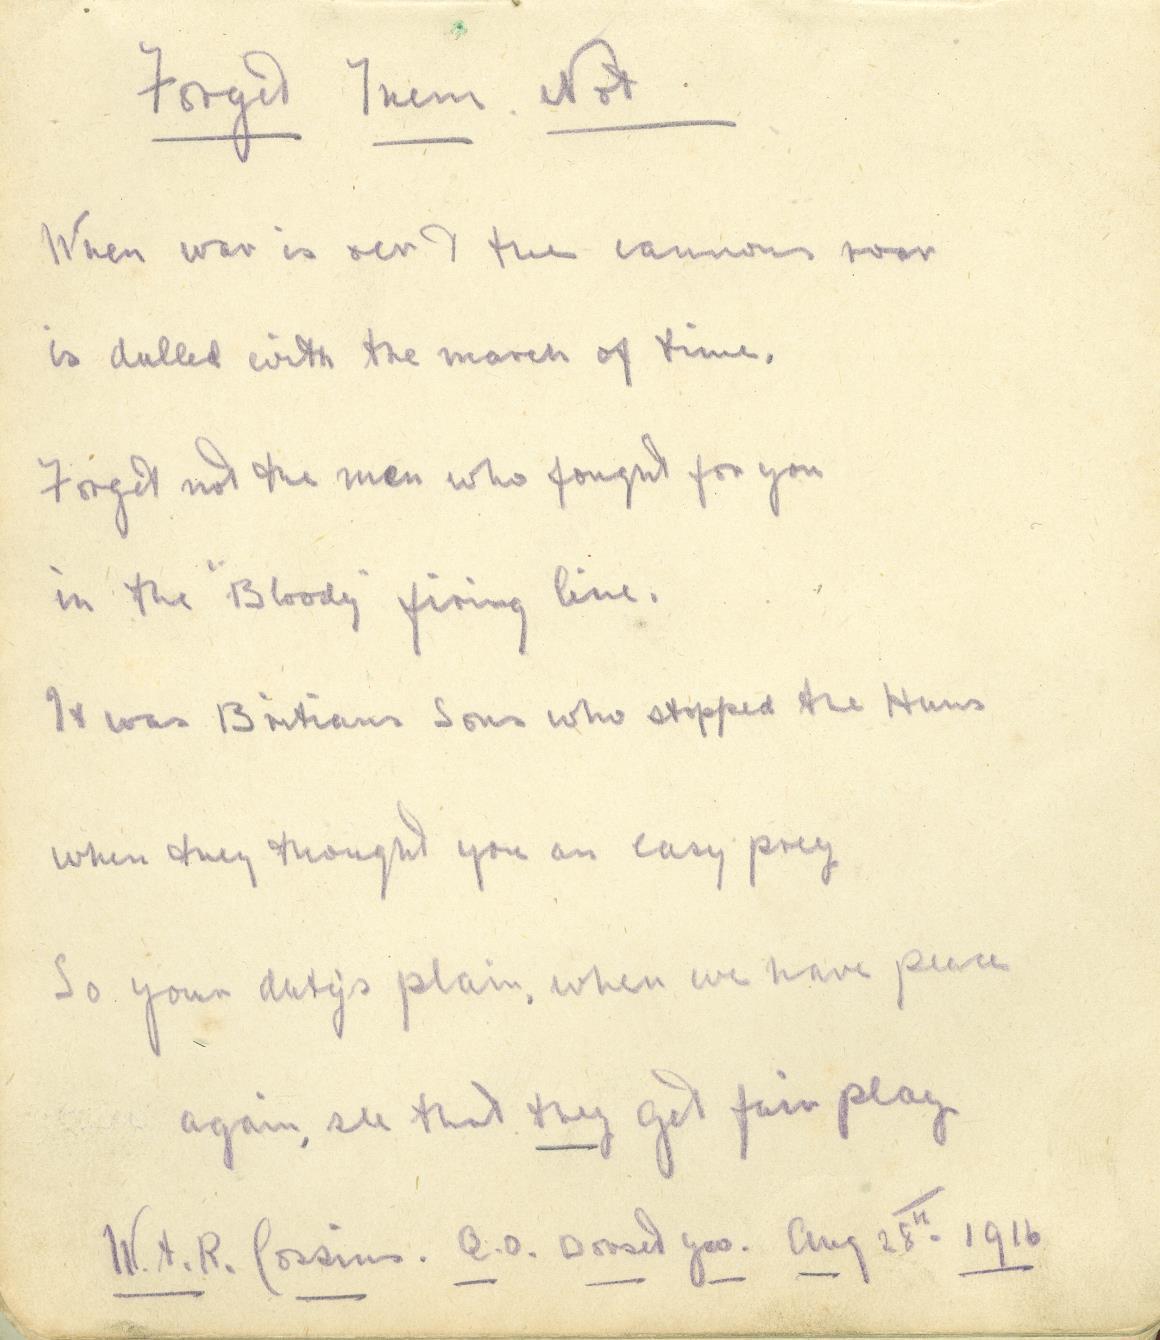 Forget Them Not
When war is oer & the cannons roar
is dulled with the march of time.
Forget not the men who fought for you
in the "Bloody" firing line.
It was Britians Sons who stopped the Huns
when they thought you an easy prey
So your duty's plain, when we have peace
again, see that they get fair play
W. A. R. Cossins. Q.O. Dorset Yeo. Aug 28th 1916